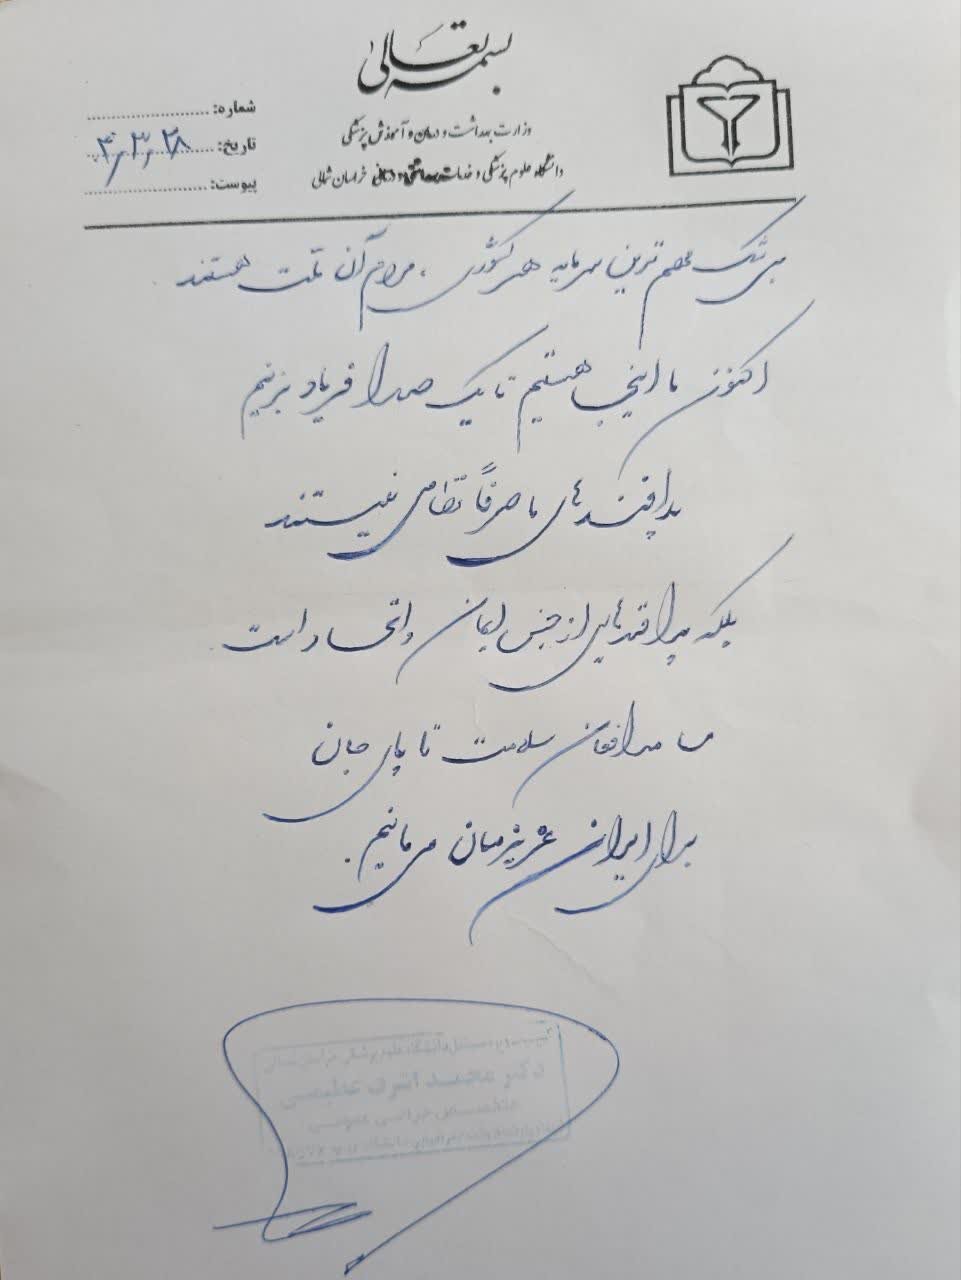 بسمه تعالی
وزارت بهداشت و درمان و آموزش پزشکی
دانشگاه علوم پزشکی و خدمات بهداشتی و درمانی خراسان شمالی
شماره:
تاریخ: ۴٫۳٫۲۸
پیوست:
بی شک مهم ترین سرمایه هر کشوری، مردم آن ملت هستند.
اکنون ما اینجا هستیم تا یک صدا فریاد بزنیم
پدافندهای ما صرفاً نظامی نیستند
بلکه پدافندهایی از جنس ایمان و اتحاد است.
ما مدافعان سلامت تا پای جان
برای ایران عزیزمان می مانیم.
دانشگاه علوم پزشکی خراسان شمالی
دکتر
متخصص جراحی عمومی